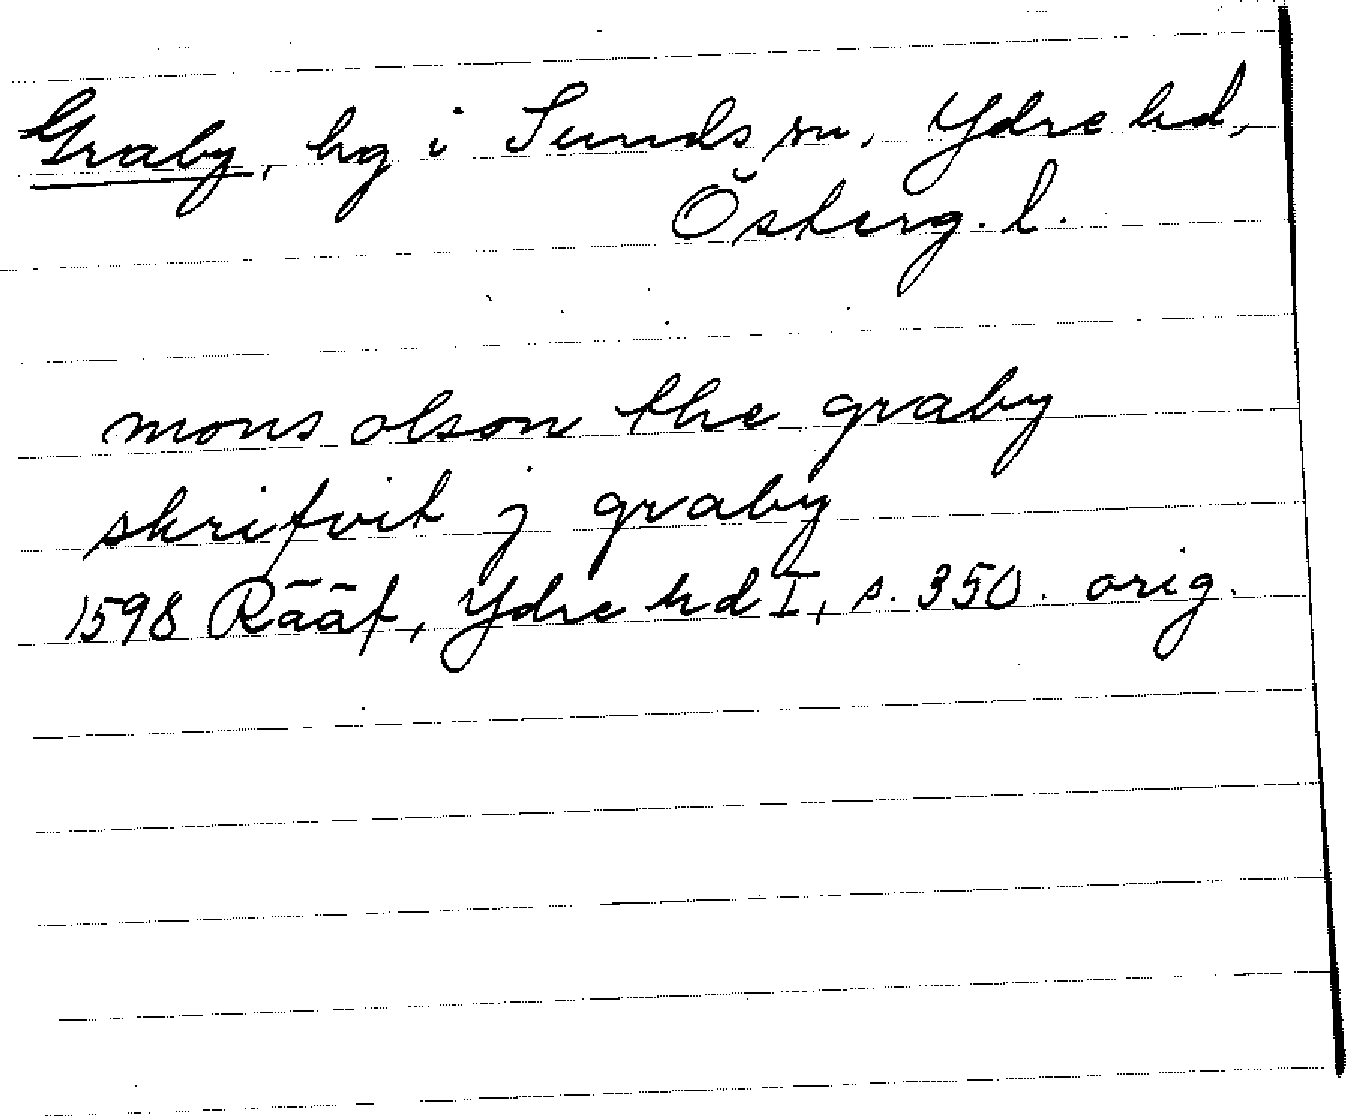 Graby, hg i Sunds sn, Ydre hd,
Österg. l.
mons olson the graby
skrifvit j graby
1598 Rääf, Ydre hd I, s. 350. orig.